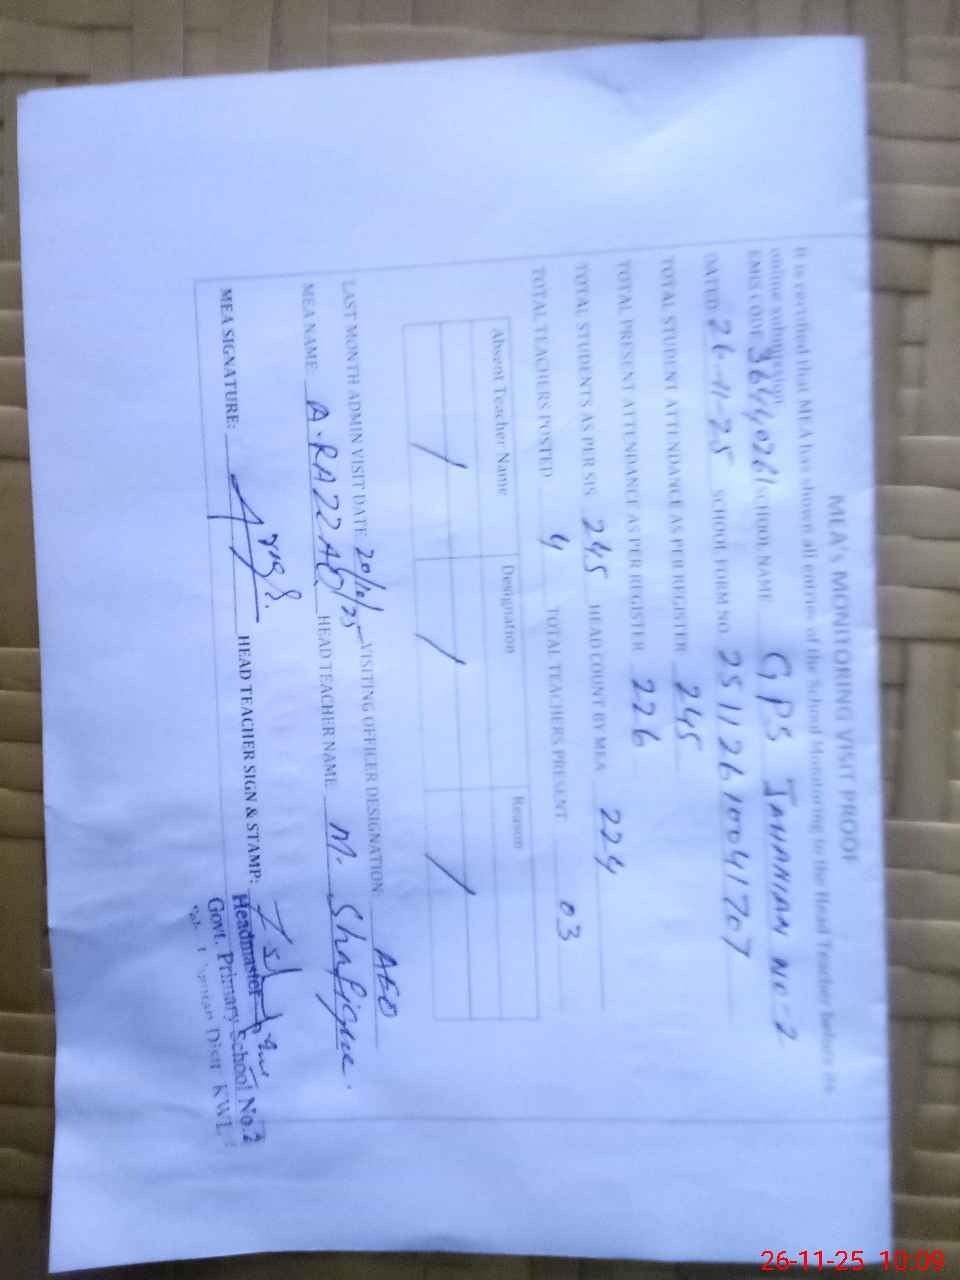 MEA's MONITORING VISIT PROOF
It is certified that MEA has shown all entries of the School Monitoring to the Head Teacher before its
online submission.
EMIS CODE 36440261 SCHOOL NAME GPS JAHANIAN NO-2
DATED 26-11-25 SCHOOL FORM NO. 25112610041707
TOTAL STUDENT ATTENDANCE AS PER REGISTER 245
TOTAL PRESENT ATTENDANCE AS PER REGISTER 226
TOTAL STUDENTS AS PER SIS 245 HEAD COUNT BY MEA 224
TOTAL TEACHERS POSTED 4 TOTAL TEACHERS PRESENT 03
Absent Teacher Name Designation Reason
/ / /
LAST MONTH ADMIN VISIT DATE 20/10/25 VISITING OFFICER DESIGNATION: AEO
MEA NAME A.RAZZAQ HEAD TEACHER NAME M. Shafique.
MEA SIGNATURE: HEAD TEACHER SIGN & STAMP:
Headmaster
Govt. Primary School No.2
Distt KWL
26-11-25 10:09